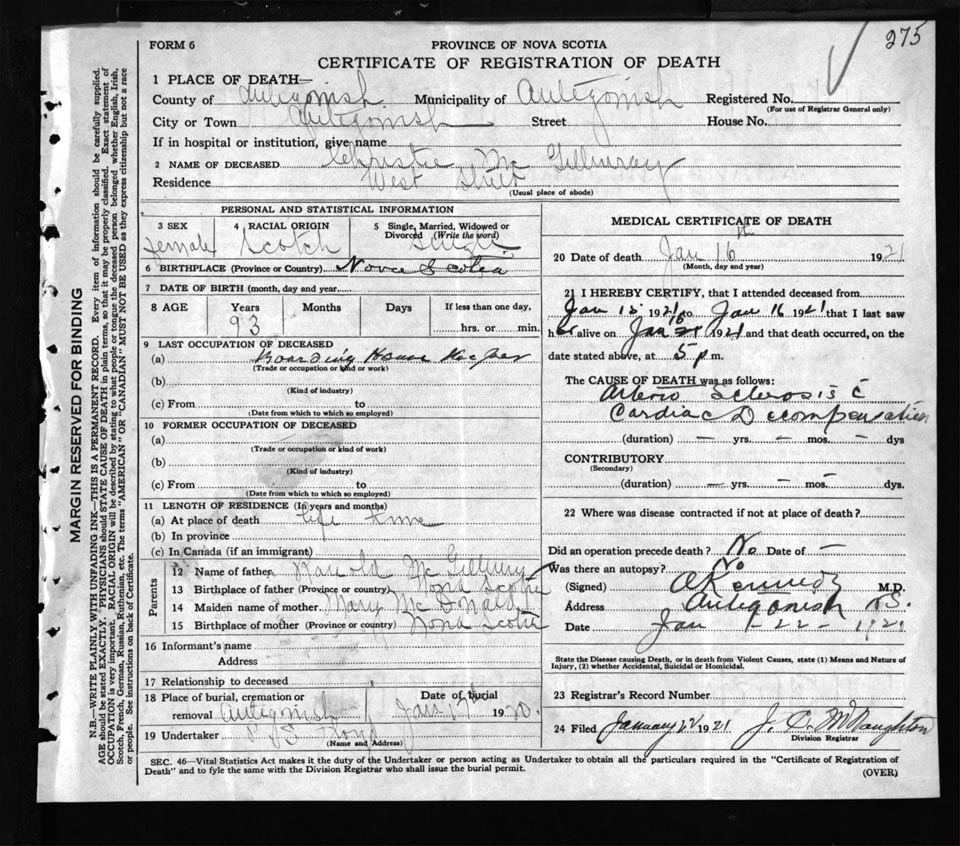 275
FORM 6
PROVINCE OF NOVA SCOTIA
CERTIFICATE OF REGISTRATION OF DEATH
1 PLACE OF DEATH—
County of Antigonish Municipality of Antigonish Registered No.
(For use of Registrar General only)
City or Town Antigonish Street House No.
If in hospital or institution, give name
2 NAME OF DECEASED Christie Mc Gillivray
Residence West Street
(Usual place of abode)
PERSONAL AND STATISTICAL INFORMATION
3 SEX 4 RACIAL ORIGIN 5 Single, Married, Widowed or Divorced (Write the word)
female Scotch Single
6 BIRTHPLACE (Province or Country) Nova Scotia
7 DATE OF BIRTH (month, day and year
8 AGE Years Months Days If less than one day,
93 hrs. or min.
9 LAST OCCUPATION OF DECEASED
(a) Boarding House Keeper
(Trade or occupation or kind or work)
(b)
(Kind of industry)
(c) From to
(Date from which to which so employed)
10 FORMER OCCUPATION OF DECEASED
(a)
(Trade or occupation or kind of work)
(b)
(Kind of industry)
(c) From to
(Date from which to which so employed)
11 LENGTH OF RESIDENCE (In years and months)
(a) At place of death life time
(b) In province
(c) In Canada (if an immigrant)
Parents
12 Name of father Mc Gillivray
13 Birthplace of father (Province or country) Nova Scotia
14 Maiden name of mother Mary McDonald
15 Birthplace of mother (Province or country) Nova Scotia
16 Informant's name
Address
17 Relationship to deceased
18 Place of burial, cremation or Date of burial
removal Antigonish Jan 1920
19 Undertaker
(Name and Address)
MEDICAL CERTIFICATE OF DEATH
20 Date of death Jan 16th 1921
(Month, day and year)
21 I HEREBY CERTIFY, that I attended deceased from
Jan 15 1921 to Jan 16 1921 that I last saw
her alive on Jan 16 1921 and that death occurred, on the
date stated above, at 5 p.m.
The CAUSE OF DEATH was as follows:
Arterio Sclerosis c̄
Cardiac Decompensation
(duration) — yrs. — mos. — dys
CONTRIBUTORY
(Secondary)
(duration) — yrs. — mos. — dys.
22 Where was disease contracted if not at place of death?
Did an operation precede death? No Date of —
Was there an autopsy? No
(Signed) Kennedy M.D.
Address Antigonish N.S.
Date Jan -22- 1921
State the Disease causing Death, or in death from Violent Causes, state (1) Means and Nature of
Injury, (2) whether Accidental, Suicidal or Homicidal.
23 Registrar's Record Number
24 Filed January 1921
Division Registrar
SEC. 46—Vital Statistics Act makes it the duty of the Undertaker or person acting as Undertaker to obtain all the particulars required in the "Certificate of Registration of
Death" and to fyle the same with the Division Registrar who shall issue the burial permit.
(OVER)
MARGIN RESERVED FOR BINDING
N.B.—WRITE PLAINLY WITH UNFADING INK—THIS IS A PERMANENT RECORD. Every item of information should be carefully supplied.
AGE should be stated EXACTLY. PHYSICIANS should STATE CAUSE OF DEATH in plain terms, so that it may be properly classified. Exact statement of
OCCUPATION is very important. RACIAL ORIGIN will be described by stating to what people or tongue the deceased person belonged whether English, Irish,
Scotch, French, German, Russian, Ruthenian, etc. The terms "AMERICAN" OR "CANADIAN" MUST NOT BE USED as they express citizenship but not a race
or people. See instructions on back of Certificate.